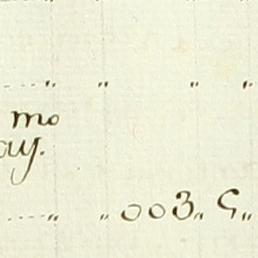 ....." " " "
mo
ay.
....." " 003" 5"